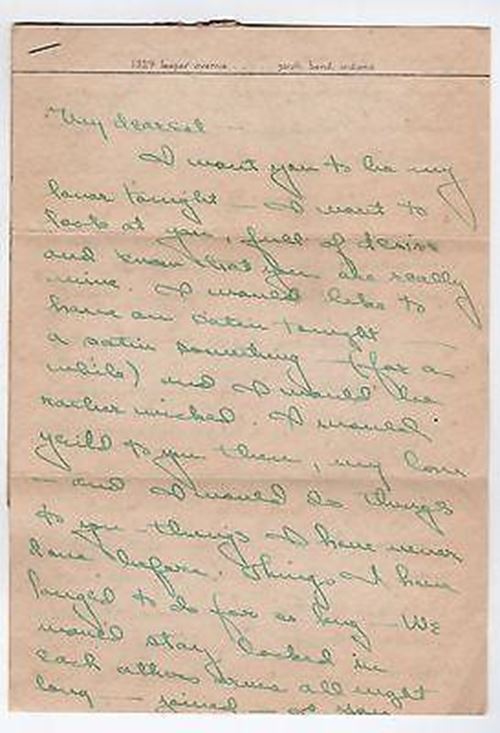 1237 leeper avenue . . . south bend, indiana
My dearest —
I want you to be my
lover tonight — I want to
look at you, full of desire
and know that you are really
mine. I would like to
have on satin tonight —
a satin something — (for a
while) and I would be
rather wicked. I would
yeild to you then, my love
— and I would do things
to you — things I have never
done before. Things I have
longed to do for so long — We
would stay locked in
each others arms all night
long — joined — as you